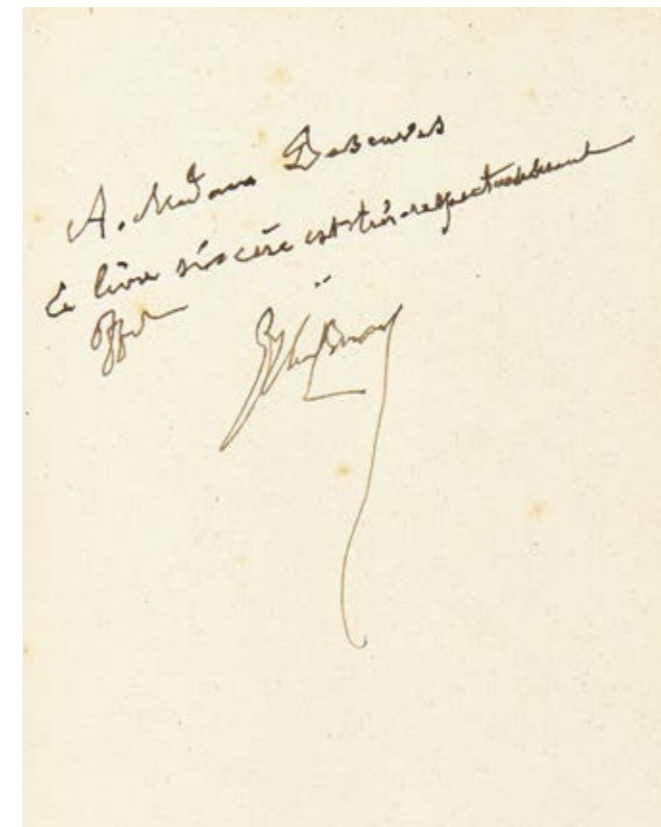 A. Madame Descaves
Ce livre sincère est très respectueusement
offert